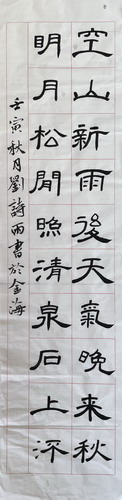 空山新雨後天氣晚来秋
明月松閒照清泉石上流
壬寅秋月劉詩雨書於金海